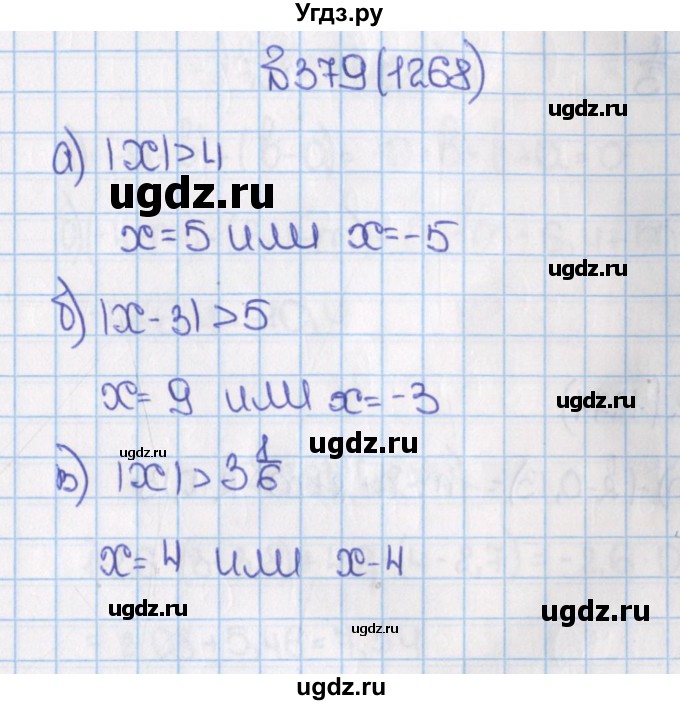 Угдз.ру
№379(1268)
ugdz.ru
а) |x|>4
ugdz.ru
x=5 или x=-5
ugdz.ru
б) |x-3|>5
x=9 или x=-3
ugdz.ru
ugdz.ru
в) |x|>3 1/6
ugdz.ru
x=4 или x-4
ugdz.ru
ugdz.ru
ugdz.ru
ugdz.ru